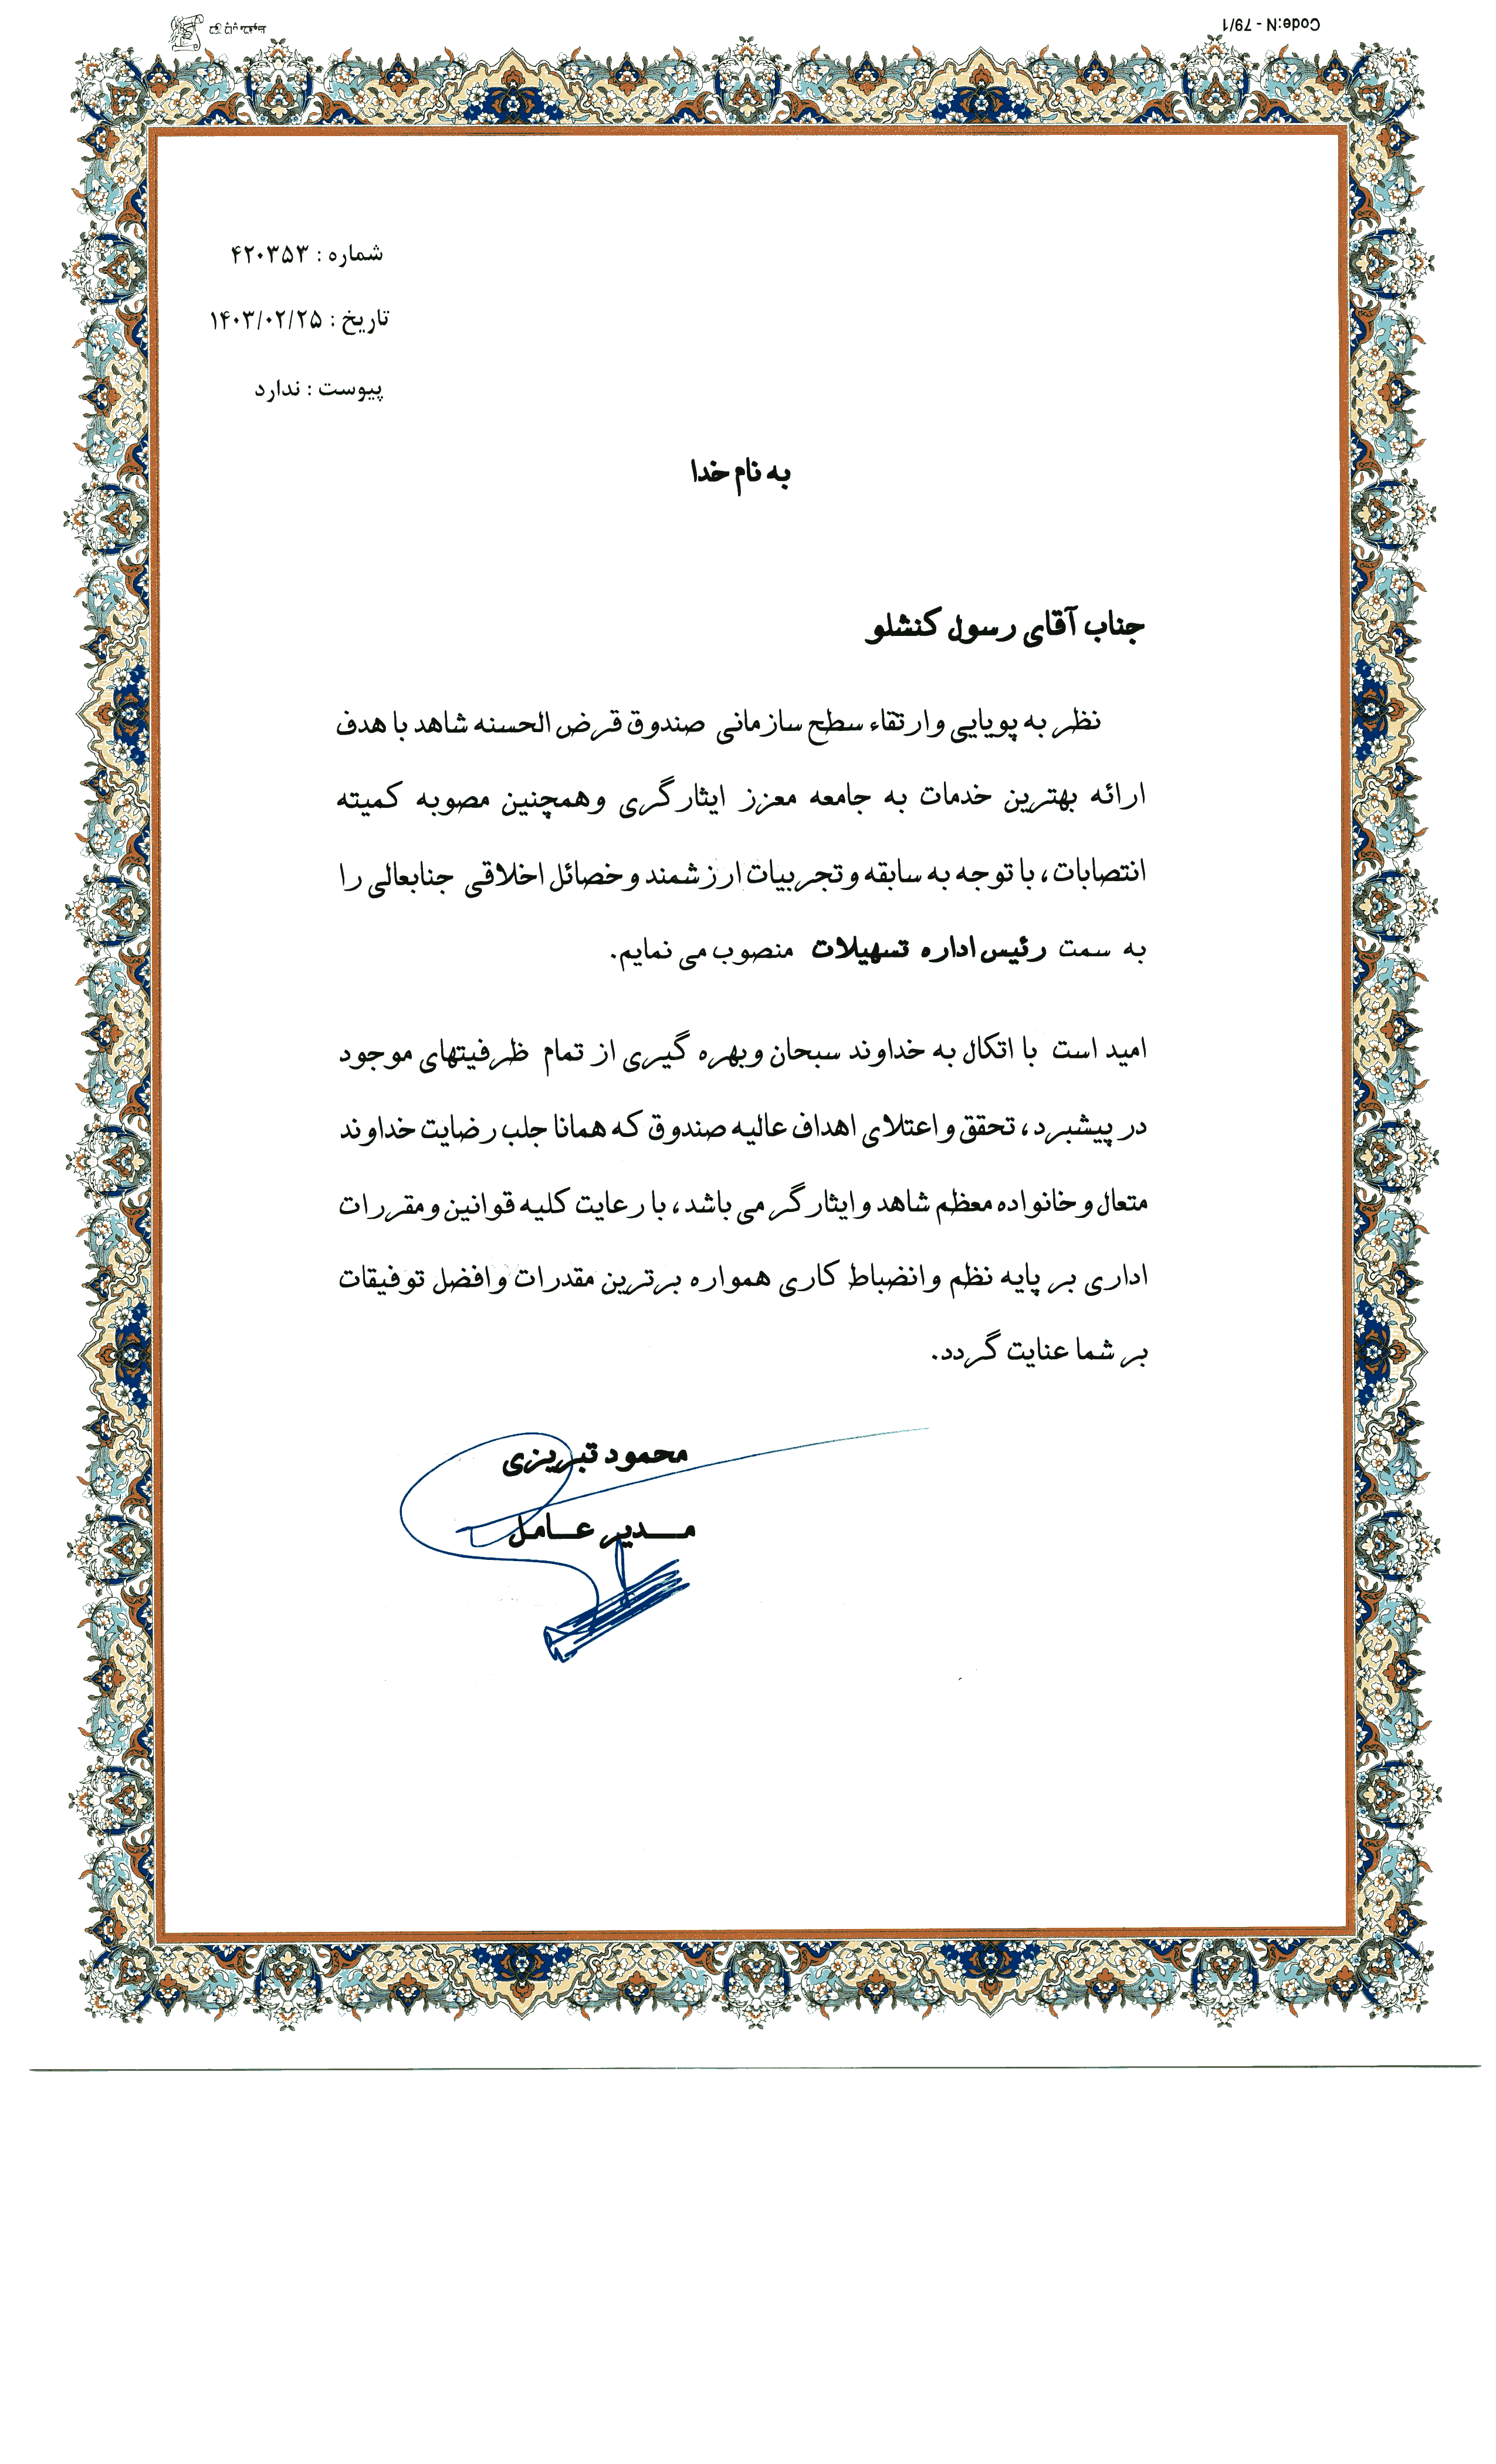 Code:N - 79/1
شماره : ۴۲۰۳۵۳
تاریخ : ۱۴۰۳/۰۲/۲۵
پیوست : ندارد
به نام خدا
جناب آقای رسول کنشلو
نظر به پویایی و ارتقاء سطح سازمانی صندوق قرض الحسنه شاهد با هدف
ارائه بهترین خدمات به جامعه معزز ایثارگری وهمچنین مصوبه کمیته
انتصابات، با توجه به سابقه و تجربیات ارزشمند و خصائل اخلاقی جنابعالی را
به سمت رئیس اداره تسهیلات منصوب می نمایم.
امید است با اتکال به خداوند سبحان وبهره گیری از تمام ظرفیتهای موجود
در پیشبرد، تحقق و اعتلای اهداف عالیه صندوق که همانا جلب رضایت خداوند
متعال و خانواده معظم شاهد و ایثارگر می باشد، با رعایت کلیه قوانین و مقررات
اداری بر پایه نظم وانضباط کاری همواره برترین مقدرات و افضل توفیقات
بر شما عنایت گردد.
محمود تبریزی
مـدیر عـامل